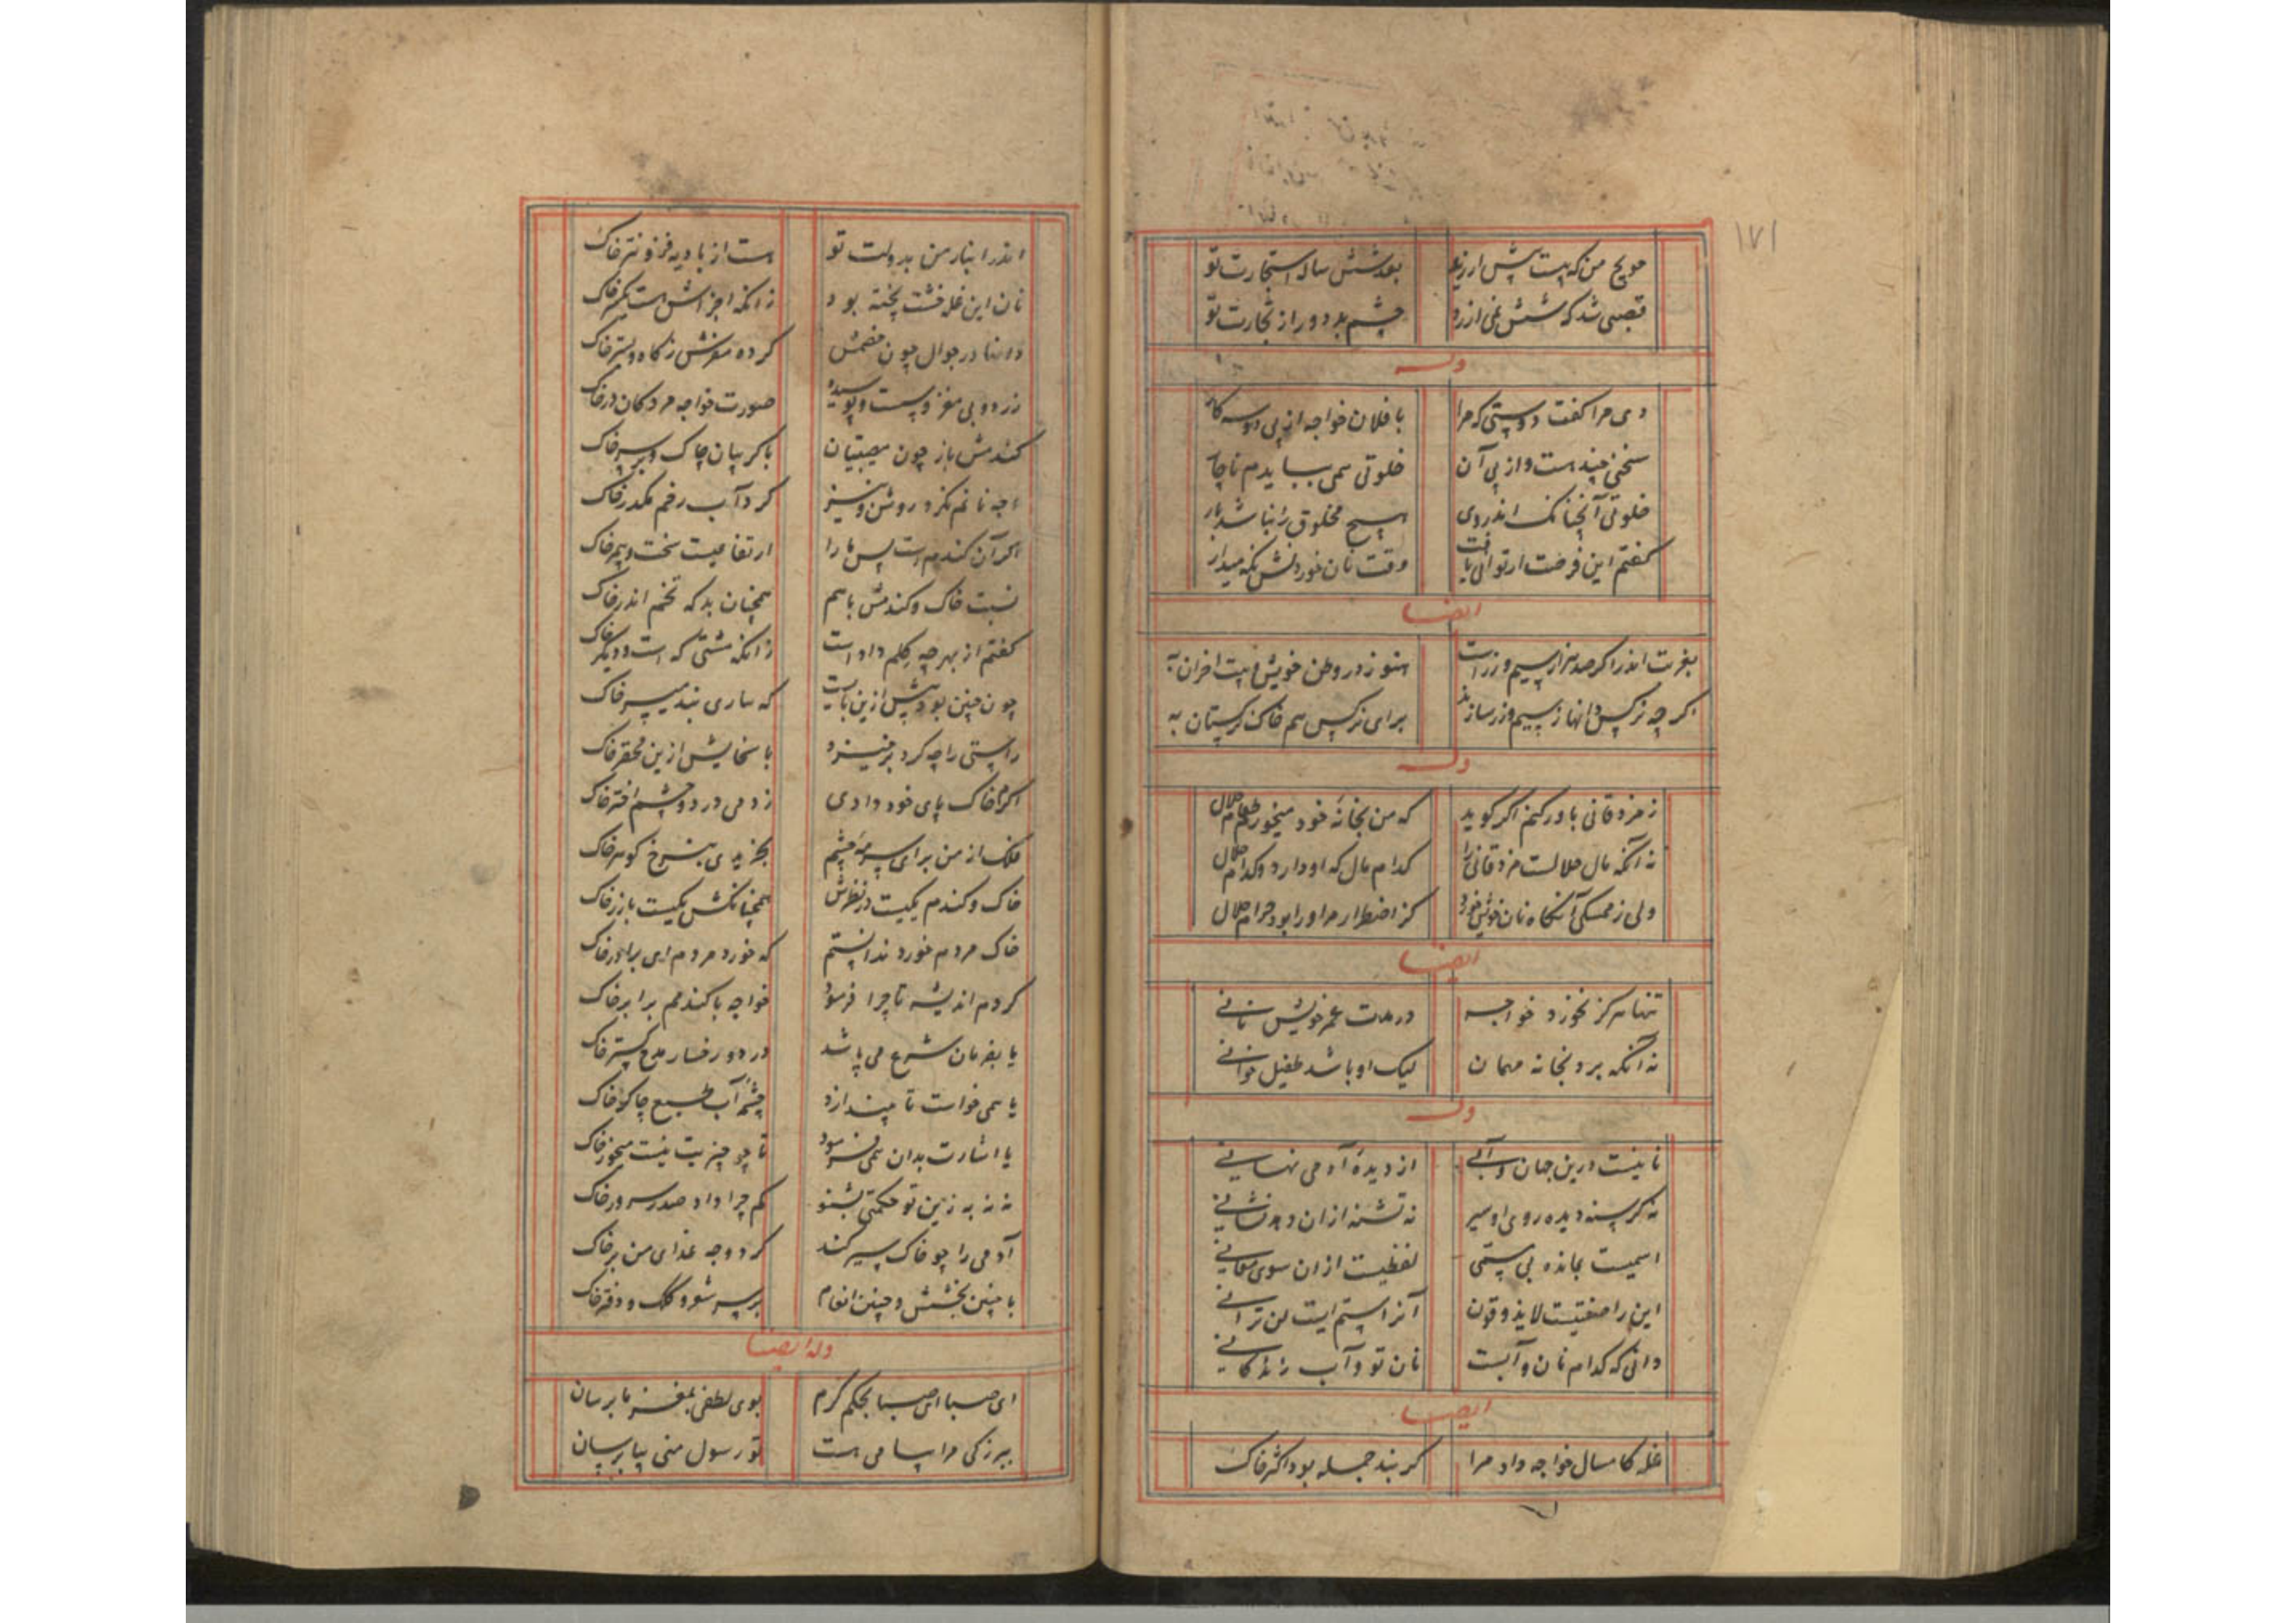 ۱۷۱
بعد شش ساله استجارت تو
چشم بد دور از تجارت تو
وله
دی مرا گفت دوستی که مرا با فلان خواجه از پی دو سه کار
سخنی چند هست و از پی آن خلوتی می ببایدم ناچار
خلوتی آنچنانک اندر وی هیچ مخلوق را نباشد بار
گفتم این فرصت ار توانی یافت وقت نان خوردنش نگه میدار
ایضا
بغربت اندر اگر صد هزار سیم و زر است هنوز در وطن خویش بیت احزان به
اگر چه نرگس دانها ز سیم و زر سازند برای نرگس هم خاک نرگستان به
وله
ز مزدقانی باور کنم اگر گوید که من بخانه خود میخورم طعام حلال
نه آنکه مال حلالست مزدقانی را کدام مال که او دارد و کدام حلال
ولی ز ممسکی آنگاه نان خویش خورد کز اضطرار مر او را بود حرام حلال
ایضا
تنها هرگز نخورد خواجه در مدت عمر خویش نانی
نه آنکه برد بخانه مهمان لیک او باشد طفیل خوانی
وله
نانیست درین جهان و آبی از دیده آدمی نهانی
نه گرسنه دیده روی او سیر نه تشنه ازان دهد نشانی
اسمیست بمانده بی مسمی لفظیست ازان سوی معانی
این را صفتیست لایذوقون آنرا ستم ایت لن ترانی
دانی که کدام نان و آبست نان تو و آب زندگانی
ایضا
غله کامسال خواجه داد مرا گر بند جمله بود اکثر خاک
اندر انبار من بدولت تو هست از بادیه فزونتر خاک
نان این غله خشت پخته بود زانکه اجزاش هست یکسر خاک
دانها در جوال چون خصمش کرده مغزش ز کاه و بستر خاک
زرد و بی مغز و پست و پوسیده صورت خواجه مردکان در خاک
گندمش باز چون مصیبتیان با گریبان چاک و بر سر خاک
وجه نانم نکرد روشن و نیز کرد آب رخم مکدر خاک
اگر آن گندم است پس ما را ارتفاعیست سخت و بیمر خاک
نسبت خاک و گندمش باهم همچنان بد که تخم اندر خاک
گفتم از بهر چه گلم داد است زانکه مشتی که است و دیگر خاک
چون چنین بود پیش ازین بایست که بباری بند میسر خاک
راستی را چه کرد برخیزد با سخایش ازین محقر خاک
اگرم خاک پای خود دادی زدمی در دو چشم اختر خاک
فلک از من برای سرمه چشم بخریدی بنرخ گوهر خاک
خاک و گندم یکیست در نظرش همچنانکش یکیست با زر خاک
خاک مردم خورد ندانستم که خورد مردم ای برادر خاک
کردم اندیشه تا چرا فرمود خواجه با گندمم برابر خاک
یا بفرمان شرع می پاشد در دو رخسار مدح گستر خاک
یا همی خواست تا بیندازد چشمه آب طبع چاکر خاک
یا اشارت بدان همی فرمود تا چو چیزیت نیست میخور خاک
نه نه به زین تو حکمتی بشنو کم چرا داد صدر سرور خاک
آدمی را چو خاک سیر کند کرد وجه غذای من بر خاک
با چنین بخشش و چنین انعام بر سر شعر و کلک و دفتر خاک
وله ایضا
ای صبا ای صبا بحکم کرم بوی لطفی بمغز ما برسان
ببزرگی مرا پیامی هست تو رسول منی پیا برسان